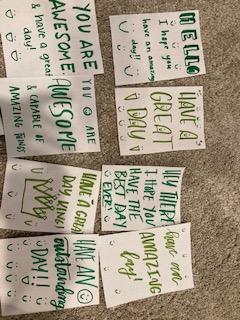 YOU ARE
AWESOME
& have a great
day!
HELLO
I hope you
have an amazing
day!!
YOU ARE
AWESOME
& CAPABLE OF
AMAZING THINGS
HAVE A
GREAT
DAY
HAVE A GREAT
DAY
HEY THERE
I HOPE YOU
HAVE THE
BEST DAY
EVER
HAVE AN
outstanding
DAY!!
have an
AMAZING
day!